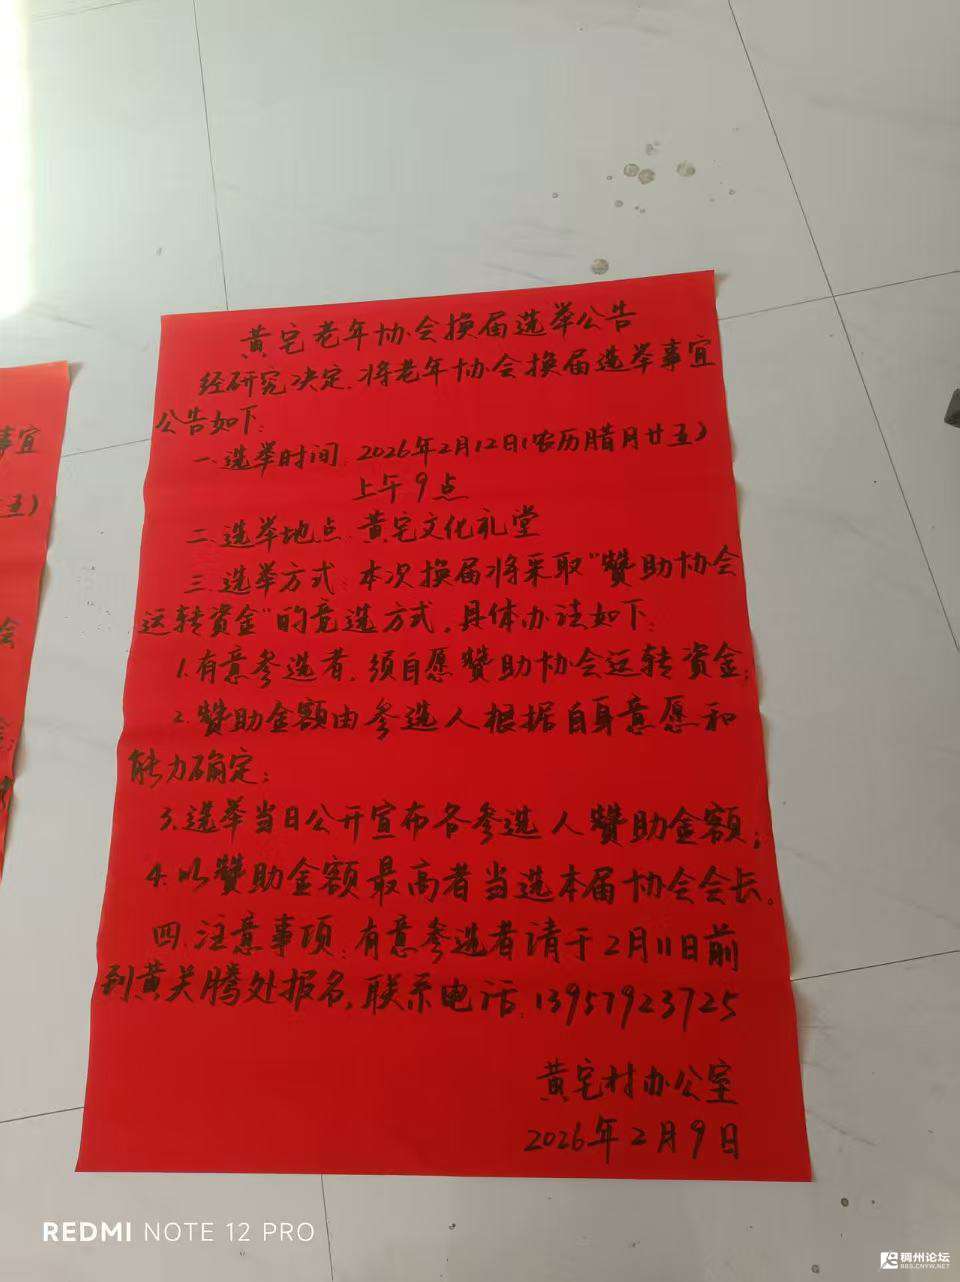 黄宅老年协会换届选举公告
经研究决定.将老年协会换届选举事宜
公告如下:
一.选举时间:2026年2月12日(农历腊月廿五)
上午9点
二.选举地点:黄宅文化礼堂
三.选举方式:本次换届将采取“赞助协会
运转资金”的竞选方式.具体办法如下:
1.有意参选者.须自愿赞助协会运转资金;
2.赞助金额由参选人根据自身意愿和
能力确定;
3.选举当日公开宣布各参选人赞助金额;
4.以赞助金额最高者当选本届协会会长。
四.注意事项:有意参选者请于2月11日前
到黄关腾处报名.联系电话:13957923725
黄宅村办公室
2026年2月9日
事宜
五)
会
REDMI NOTE 12 PRO
稠州论坛
BBS.CNYW.NET